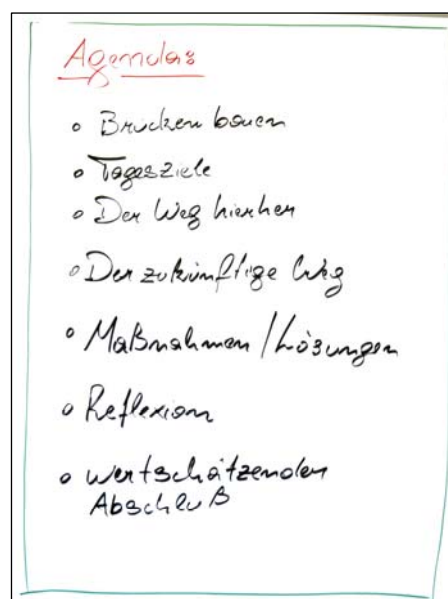 Agenda:
• Brücken bauen
• Tagesziele
• Der Weg hierher
• Der zukünftige Weg
• Maßnahmen / Lösungen
• Reflexion
• wertschätzender
Abschluß